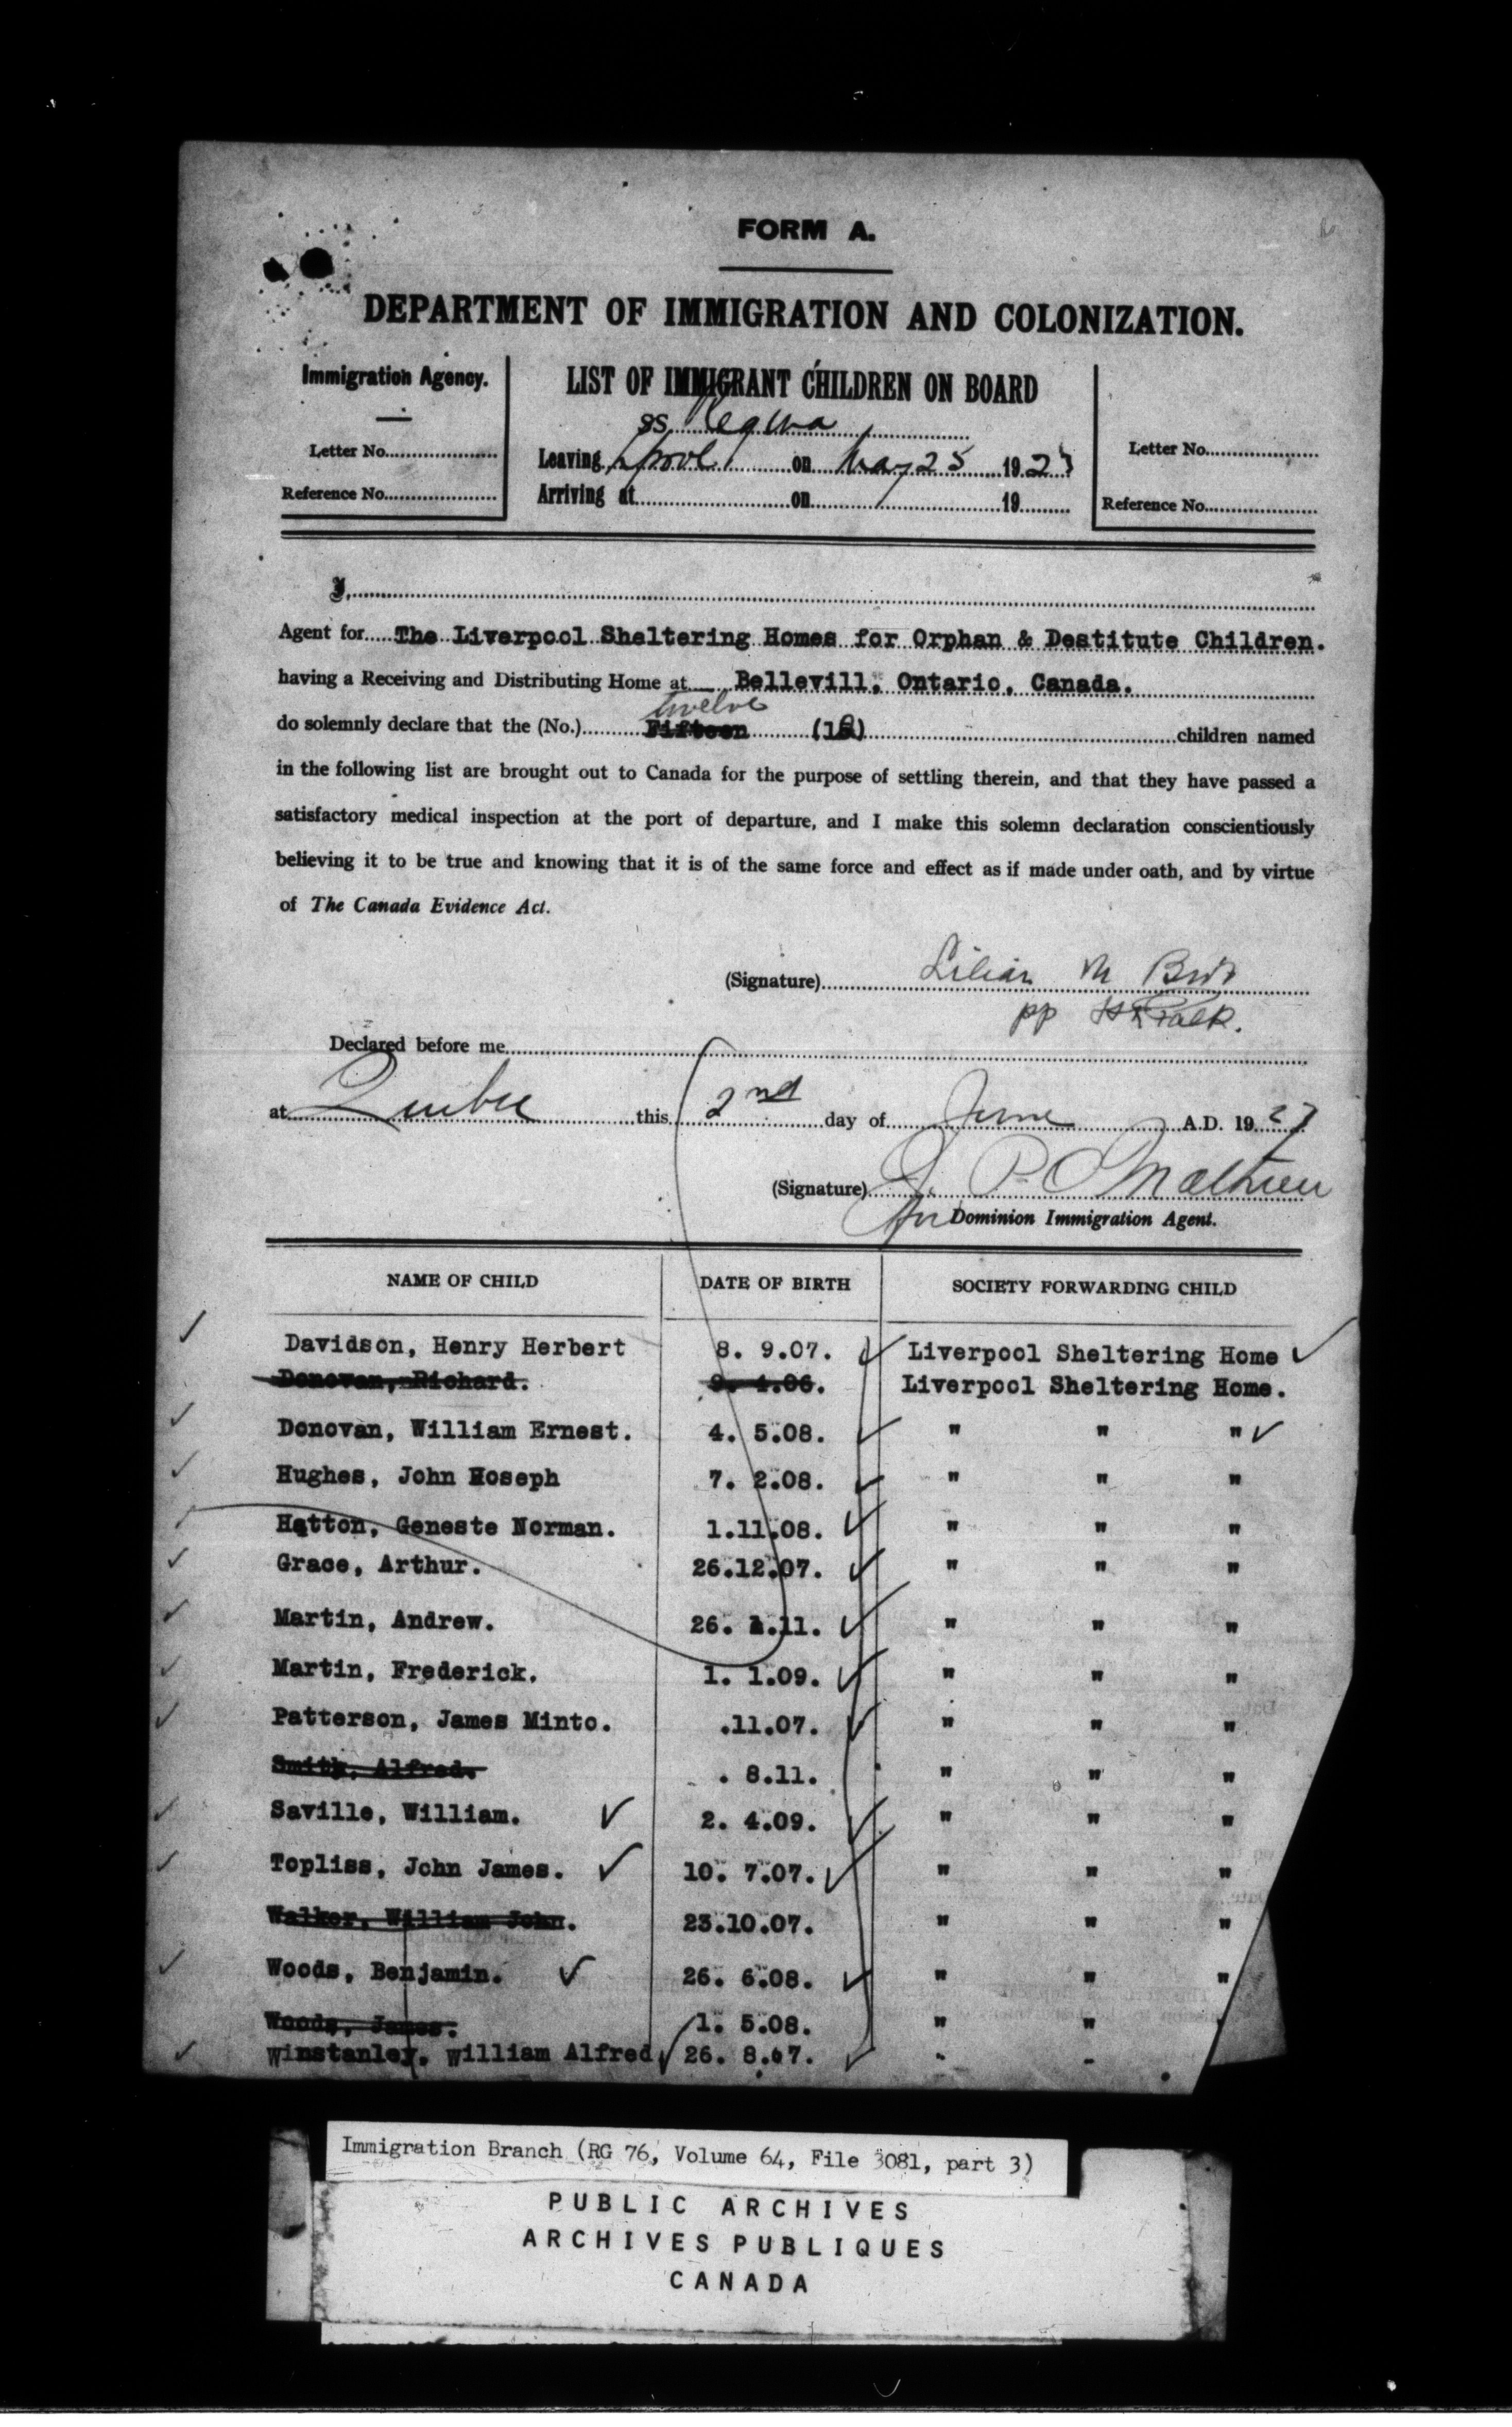 FORM A.
DEPARTMENT OF IMMIGRATION AND COLONIZATION.
Immigration Agency.
Letter No.
Reference No.
LIST OF IMMIGRANT CHILDREN ON BOARD
SS. Regina
Leaving L'pool on May 25 192
Arriving at on 19
Letter No.
Reference No.
I,
Agent for The Liverpool Sheltering Homes for Orphan & Destitute Children.
having a Receiving and Distributing Home at Bellevill, Ontario, Canada.
twelve
do solemnly declare that the (No.) Fifteen (12) children named
in the following list are brought out to Canada for the purpose of settling therein, and that they have passed a
satisfactory medical inspection at the port of departure, and I make this solemn declaration conscientiously
believing it to be true and knowing that it is of the same force and effect as if made under oath, and by virtue
of The Canada Evidence Act.
(Signature) Lilian M
pp
Declared before me
at Quebec this 2nd day of June A.D. 19
(Signature) J. P. O Mathieu
for Dominion Immigration Agent.
NAME OF CHILD DATE OF BIRTH SOCIETY FORWARDING CHILD
Davidson, Henry Herbert 8. 9.07. Liverpool Sheltering Home
Donovan, Richard. 9. 4.06. Liverpool Sheltering Home.
Donovan, William Ernest. 4. 5.08. " " "
Hughes, John Hoseph 7. 2.08. " " "
Hatton, Geneste Norman. 1.11.08. " " "
Grace, Arthur. 26.12.07. " " "
Martin, Andrew. 26. 1.11. " " "
Martin, Frederick. 1. 1.09. " " "
Patterson, James Minto. .11.07. " " "
Smith, Alfred. . 8.11. " " "
Saville, William. 2. 4.09. " " "
Topliss, John James. 10. 7.07. " " "
Walker, William John. 23.10.07. " " "
Woods, Benjamin. 26. 6.08. " " "
Woods, James. 1. 5.08. " "
Winstanley, William Alfred 26. 8.07. " "
Immigration Branch (RG 76, Volume 64, File 3081, part 3)
PUBLIC ARCHIVES
ARCHIVES PUBLIQUES
CANADA